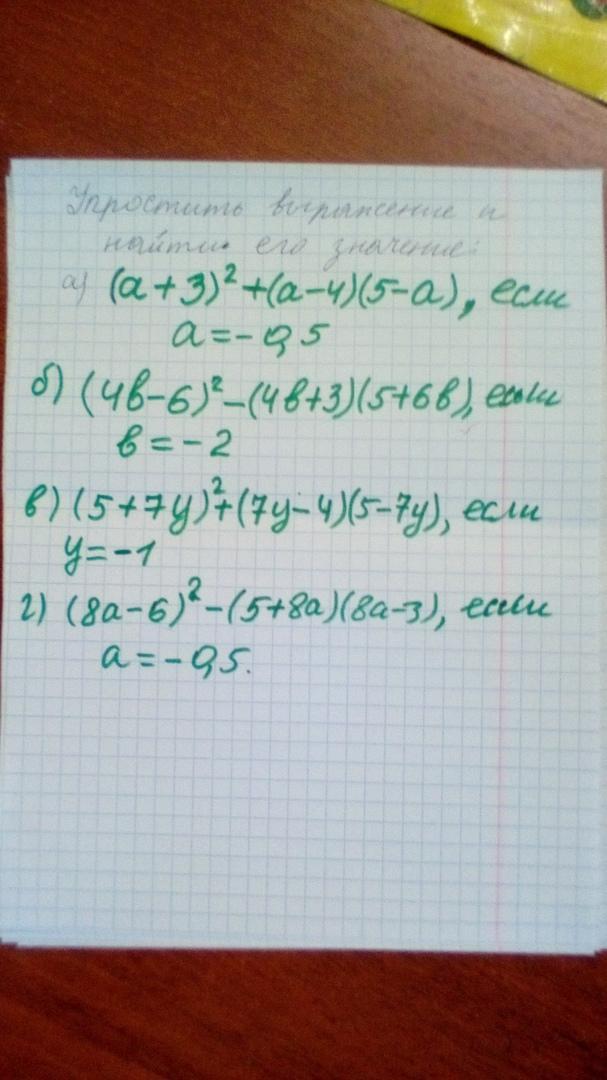 Упростить выражение и
найти его значение:
а) (a+3)²+(a-4)(5-a), если
a=-0,5
б) (4в-6)²-(4в+3)(5+6в), если
в=-2
в) (5+7y)²+(7y-4)(5-7y), если
y=-1
г) (8a-6)²-(5+8a)(8a-3), если
a=-0,5.